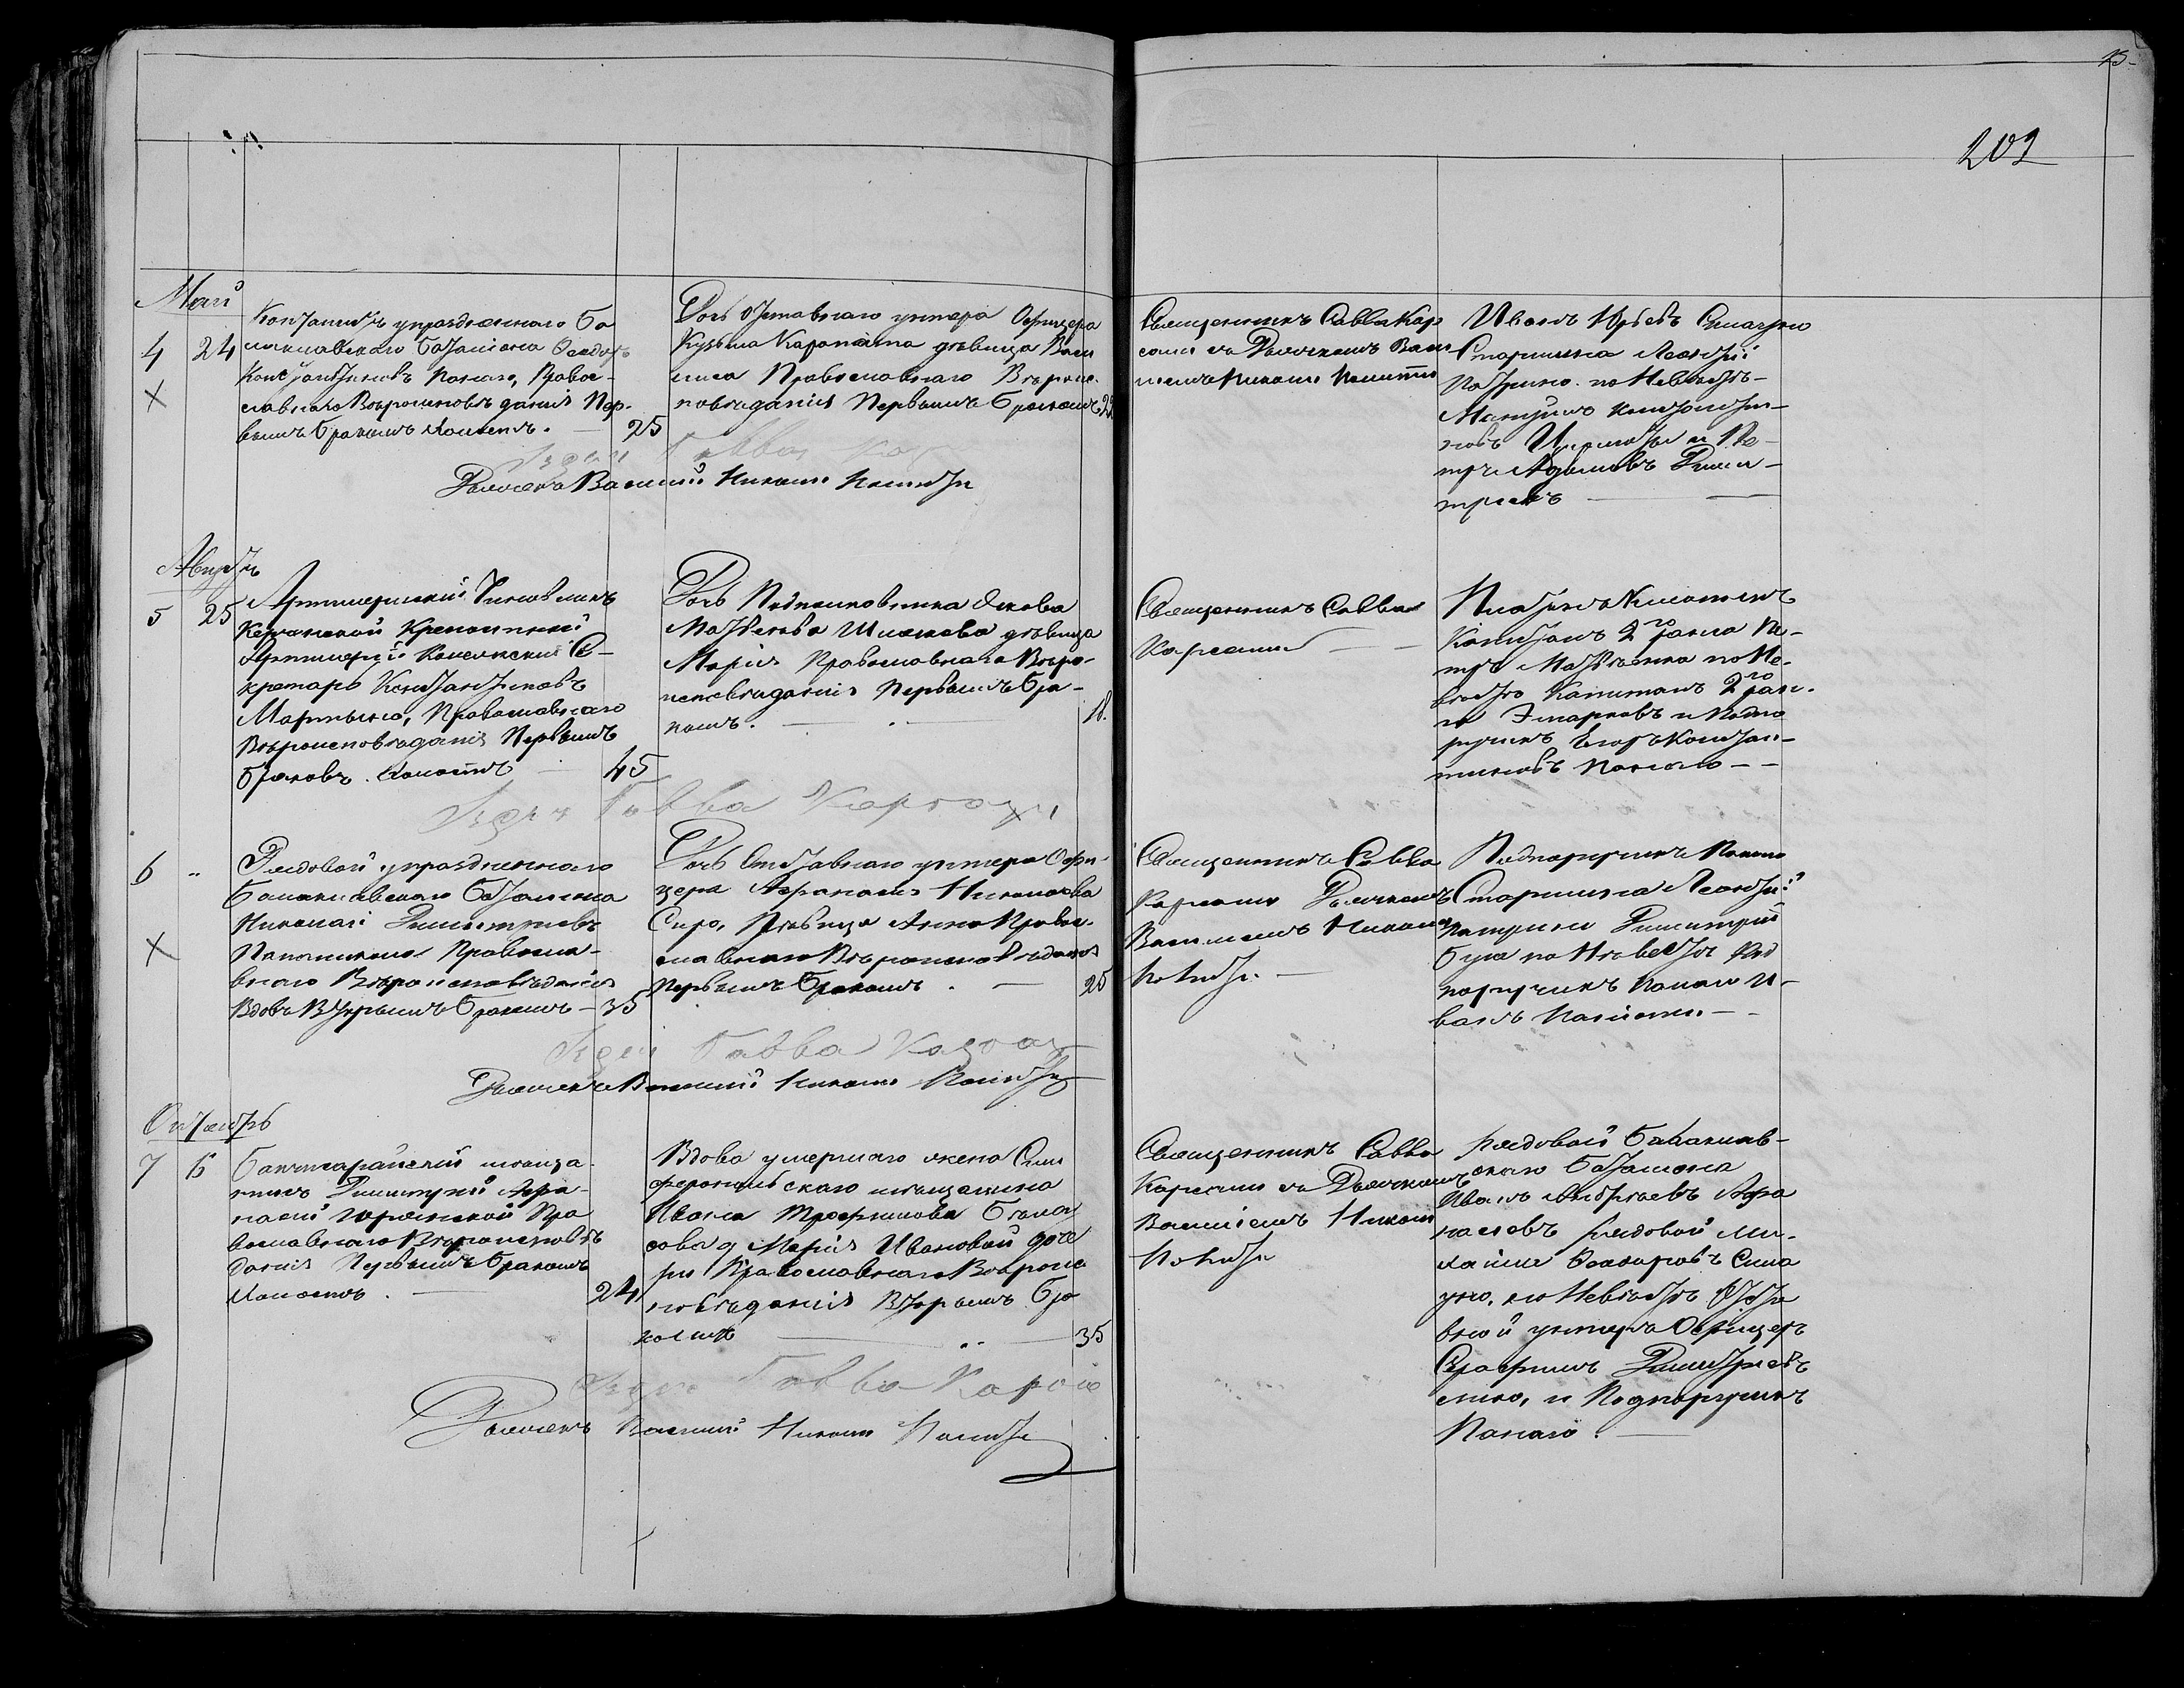 25
202
Май
4 24
Контонистъ упраздненнаго Ба
лаклавскаго баталiона Ѳеодоръ
Константиновъ Панаго, Правос-
славнаго Вѣроисповѣданiя Пер-
вымъ бракомъ холостъ. — 25
Дочь отставнаго унтеръ Офицера
Кузьма Карапата дѣвица Васи
лиса Православнаго Вѣроис-
повѣданiя Первымъ бракомъ 22
Священникъ Савва Кар
сами съ Дьячкомъ Васи
Иванъ Юрьевъ Синагуно
Старшина Леонтiй
Патрино. по Невѣстѣ-
Мануилъ Константи-
новъ и Пе-
тръ Адамовъ Дими-
трiевъ
Iерей Савва Кар
Дьячекъ Василiй Николи
Августъ
5 25
Артиллерiйскiй Чиновникъ
Керченской Крепостной
Артиллерiи Колежскiй Се-
кретарь Константиновъ
Мартыно, Православнаго
Вѣроисповѣданiя Первымъ
бракомъ. Холостъ — 45
Дочь Подполковника Якова
Матвѣева Шлахова дѣвица
Марiя Православнаго Вѣро-
исповѣданiя Первымъ бра-
комъ. — 18.
Священникъ Савва
Карсами
Капитанъ 2го ранга Пе-
тръ по Не-
вѣсте Капитанъ 2го ран-
га и Подпо
ручикъ Егоръ Констан-
тиновъ Панаго
Iерей Савва Карсами
6 "
Рядовой упраздненнаго
Балаклавскаго баталiона
Николай Димитрiевъ
Православ-
наго Вѣроисповѣданiя
Вдовъ Вторымъ бракомъ — 35
Дочь Отставнаго унтеръ Офи-
цера Афанасiя Николаева
Сиро, Дѣвица Анна Правос-
лавнаго Вѣроисповѣданiя
Первымъ бракомъ. — 25
Священникъ Савва
Карсами Дьячкомъ
Василiемъ Николи
Подпоручикъ Панаго
Старшина Леонтiй
Патрино Димитрiй
по Невѣстѣ Под
поручикъ Панаго И-
ванъ
Iерей Савва Карсами
Дьячекъ Василiй Николи
Октябрь
7 6
Бахчисарайскiй мѣща-
нинъ Димитрiй Афа-
насiй Пра
вославнаго Вѣроисповѣ
данiя Первымъ бракомъ
Холостъ. — 24
Вдова умершаго жена Сим
феропольскаго мѣщанина
Ивана Трофимова
Марiя Ивановой доче
ри Православнаго Вѣроис
повѣданiя Вторымъ бра
комъ — 35
Священникъ Савва
Карсами съ Дьячкомъ
Василiемъ Николи
Рядовой Балаклав-
скаго баталiона
Иванъ Андрѣевъ Афа
насьевъ рядовой Ми-
хайла Сина
гуно, по Невѣстѣ Отста
вной унтеръ Офицеръ
и Подпоручикъ
Панаго.
Iерей Савва Карсами
Дьячекъ Василiй Николи